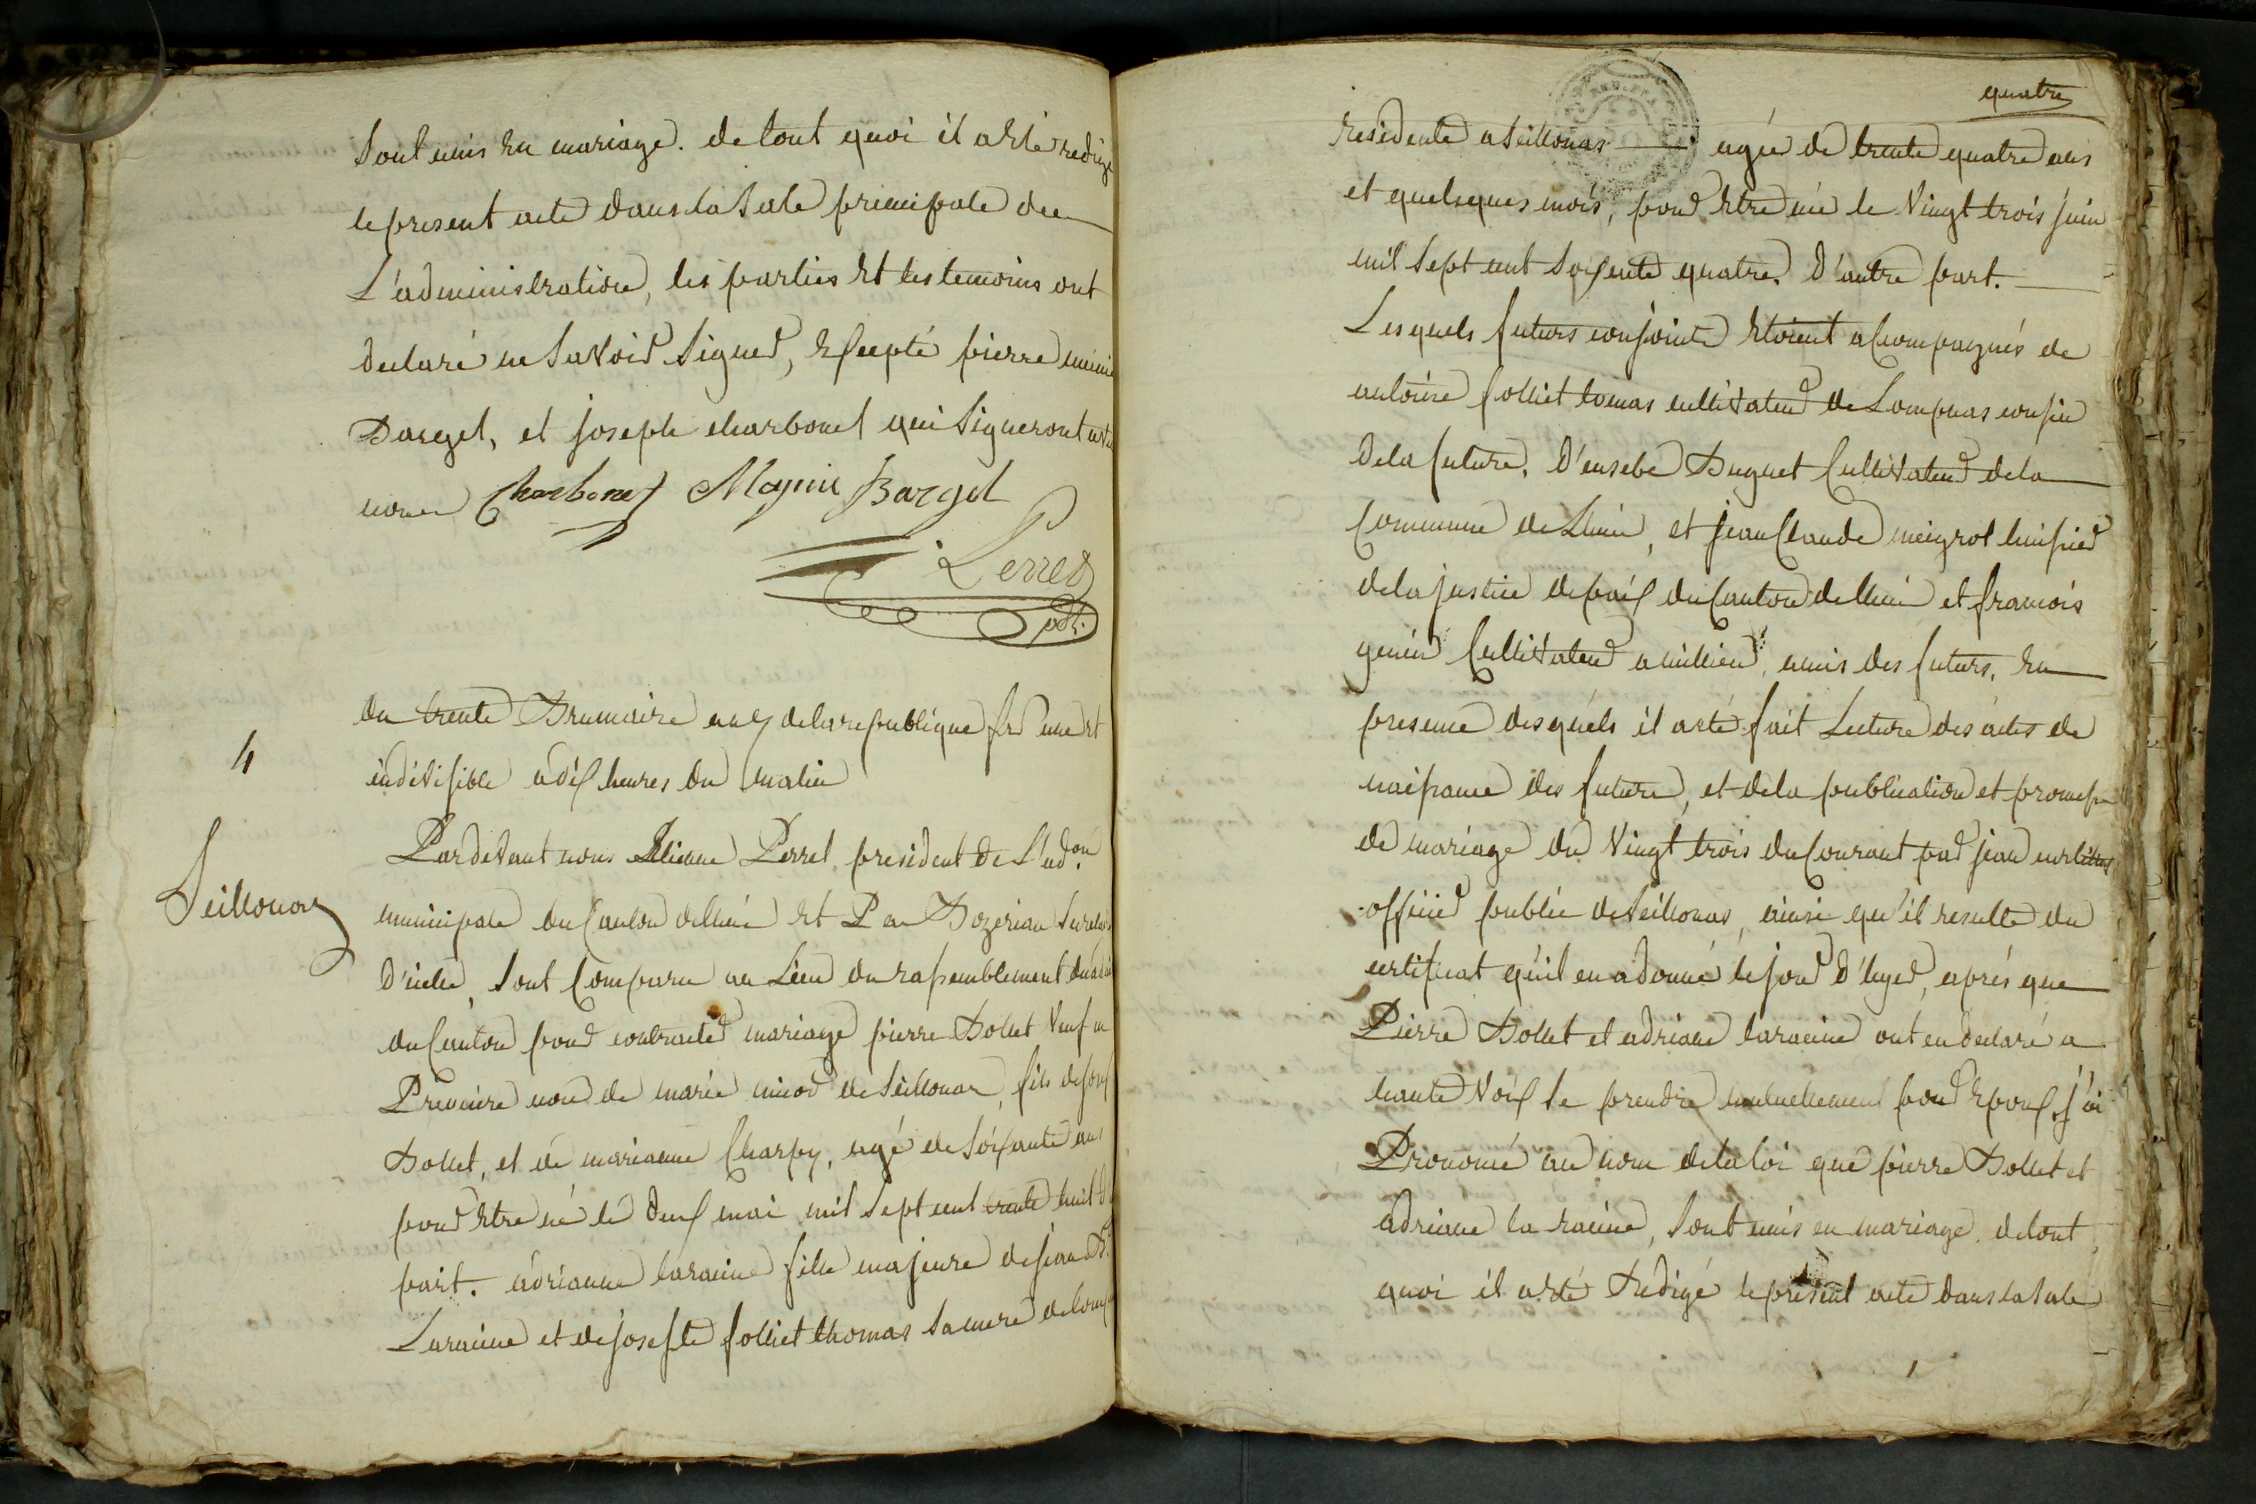 sont unis en mariage. de tout quoi il a été redigé
le present acte dans la sale principale de
L'administration, les parties et les temoins ont
declaré ne savoir signer, excepté pierre
Bargel, et joseph charbonet qui signeront avec
nous Charbonet Bargel
Perret
pdt.
4
du trente Brumaire an 7 de la republique fse une et
indivisible a dix heures du matin
Seillonas
Pardevant nous Etienne Perret president de L'adon
municipale du Canton de lhuis et Dozerian secretaire
d'icelle, sont comparu au Lieu du rassemblement
du Canton pour contracter mariage pierre Bollet veuf en
Premiere nôce de marie de seillonas, fils de
Bollet, et de marianne Charpy, agé de soixante ans
pour être né le deux mai mil sept cent trente huit d'
part. adrianne laracine fille majeure de jean
Laracine et de josephte folliet thomas sa mere de
quatre
residente a seillonas agée de trente quatre ans
et quelques mois, pour être née le vingt trois juin
mil sept cent soixente quatre. D'autre part.
Lesquels futurs conjoints etoient acompagnés de
antoine folliet tomas cultivateur de Lompnas cousin
de la future, D'eusebe Buguet Cultivateur de la
Commune de Lhuis, et jean Claude meigrot huissier
de la justice de paix du Canton de lhuis et francois
genin Cultivateur a millieu, amis des futurs, en
presence desquels il a été fait Lecture des actes de
naissance des futurs, et de la publication et promesse
de mariage du vingt trois du Courant par jean
officier public de seillonas, ainsi qu'il resulte du
certificat qu'il en a donné le jour d'hyer, aprés que
Pierre Bollet et adriane laracine ont eu declaré a
haute voix se prendre mutuellement pour epoux, j'ai
Prononcé au nom de la loi que pierre Bollet et
adriane la racine, sont unis en mariage. de tout
quoi il a été Redigé le present acte dans la sale